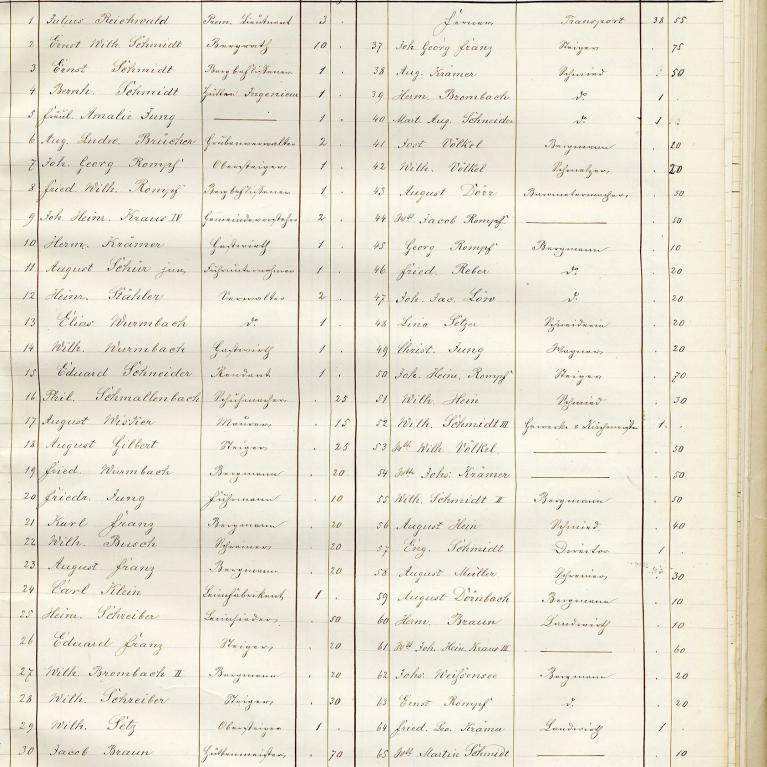 1 Julius Reichwald Prem. Lieutnant 3 .
2 Ernst Wilh. Schmidt Bergrath 10 .
3 Ernst Schmidt Bergbeflissener 1 .
4 Bernh. Schmidt Hütten Ingenieur 1 .
5 Fräul. Amalie Jung — 1 .
6 Aug. Ludw. Brücher Grubenverwalter 2 .
7 Joh. Georg Rompf Obersteiger 1 .
8 Fried. Wilh. Rompf Bergbeflissener 1 .
9 Joh. Heinr. Kraus IV Gemeindevorsteher 2 .
10 Herm. Krämer Gastwirth 1 .
11 August Schür jun. Fuhrunternehmer 1 .
12 Heinr. Stähler Verwalter 2 .
13 Elias Wurmbach do. 1 .
14 Wilh. Wurmbach Gastwirth 1 .
15 Eduard Schneider Rendant 1 .
16 Phil. Schmallenbach Schuhmacher . 25
17 August Wisker Maurer . 15
18 August Gilbert Steiger . 25
19 Fried. Wurmbach Bergmann . 20
20 Friedr. Jung Fuhrmann . 10
21 Karl Franz Bergmann . 20
22 Wilh. Busch Schreiner . 20
23 August Franz Bergmann . 20
24 Carl Klein Leimfabrikant 1 .
25 Heinr. Schreiber Leimsieder . 50
26 Eduard Franz Steiger . 20
27 Wilh. Brombach II Bergmann . 20
28 Wilh. Schreiber Steiger . 30
29 Wilh. Setz Obersteiger 1 .
30 Jacob Braun Hüttenmeister . 70
Ferner Transport 38 55
37 Joh. Georg Franz Steiger . 75
38 Aug. Krämer Schmied . 50
39 Heinr. Brombach do. 1 .
40 Mart. Aug. Schneider do. 1 .
41 Jost Völkel Bergmann . 20
42 Wilh. Völkel Schmelzer . 20
43 August Dörr Barometermacher . 50
44 Wtt Jacob Rompf — . 50
45 Georg Rompf Bergmann . 10
46 Fried. Reber do. . 20
47 Joh. Jac. Löw d. . 20
48 Lina Setzer Schneiderin . 20
49 Christ. Jung Wagner . 20
50 Joh. Heinr. Rompf Steiger . 70
51 Wilh. Hein Schmied . 30
52 Wilh. Schmidt III Gewerke & Kirchmeister 1 .
53 Wtt Wilh. Völkel — . 50
54 Wtt Johs. Krämer — . 50
55 Wilh. Schmidt II Bergmann . 50
56 August Hein Schmied . 40
57 Eng. Schmidt Director 1 .
58 August Müller Schreiner . 30
59 August Dörnbach Bergmann . 10
60 Herm. Braun Landwirth . 10
61 Wtt Joh. Hein. Kraus III — . 60
62 Johs. Weißensee Bergmann . 20
63 Ernst Rompf d. . 20
64 Fried. Leo. Krämer Landwirth 1 .
65 Wtt Martin Schmidt — . 10